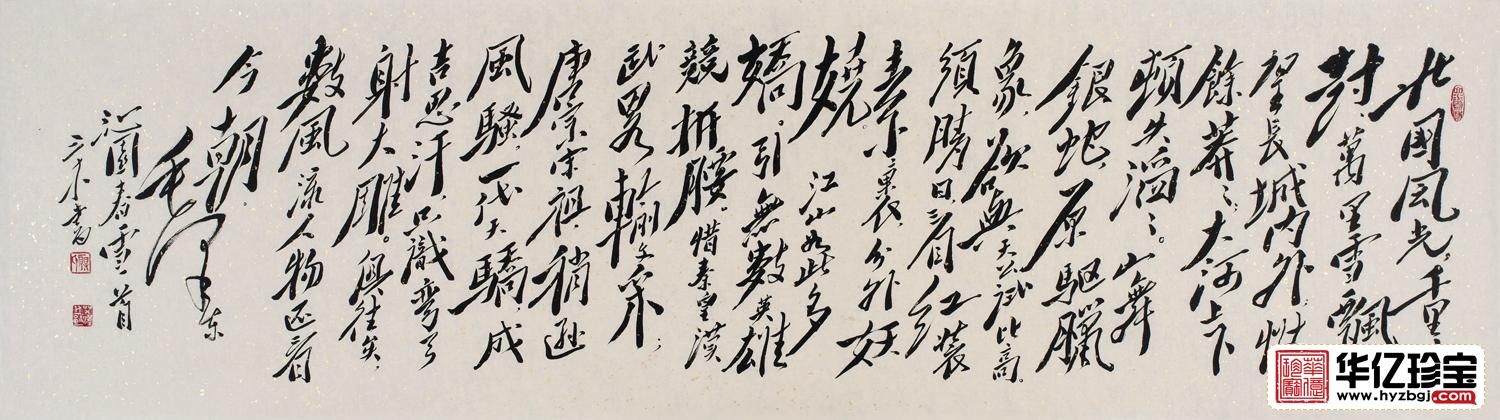 北國风光,千里
封,萬里雪飄
望長城内外,惟
餘莽〻;大河上下
頓失滔〻。山舞
銀蛇,原驅臘
象,欲與天公試比高。
須晴日,看红装
素裹,分外妖
嬈。江山如此多
嬌,引無數英雄
競折腰。惜秦皇漢
武,略輸文采;
唐宗宋祖,稍遜
風騷。一代天驕,成
吉思汗,只識彎弓
射大雕。俱往矣,
數風流人物,还看
今朝。
毛泽东
沁園春雪一首
华亿珍宝
www.hyzbgj.com